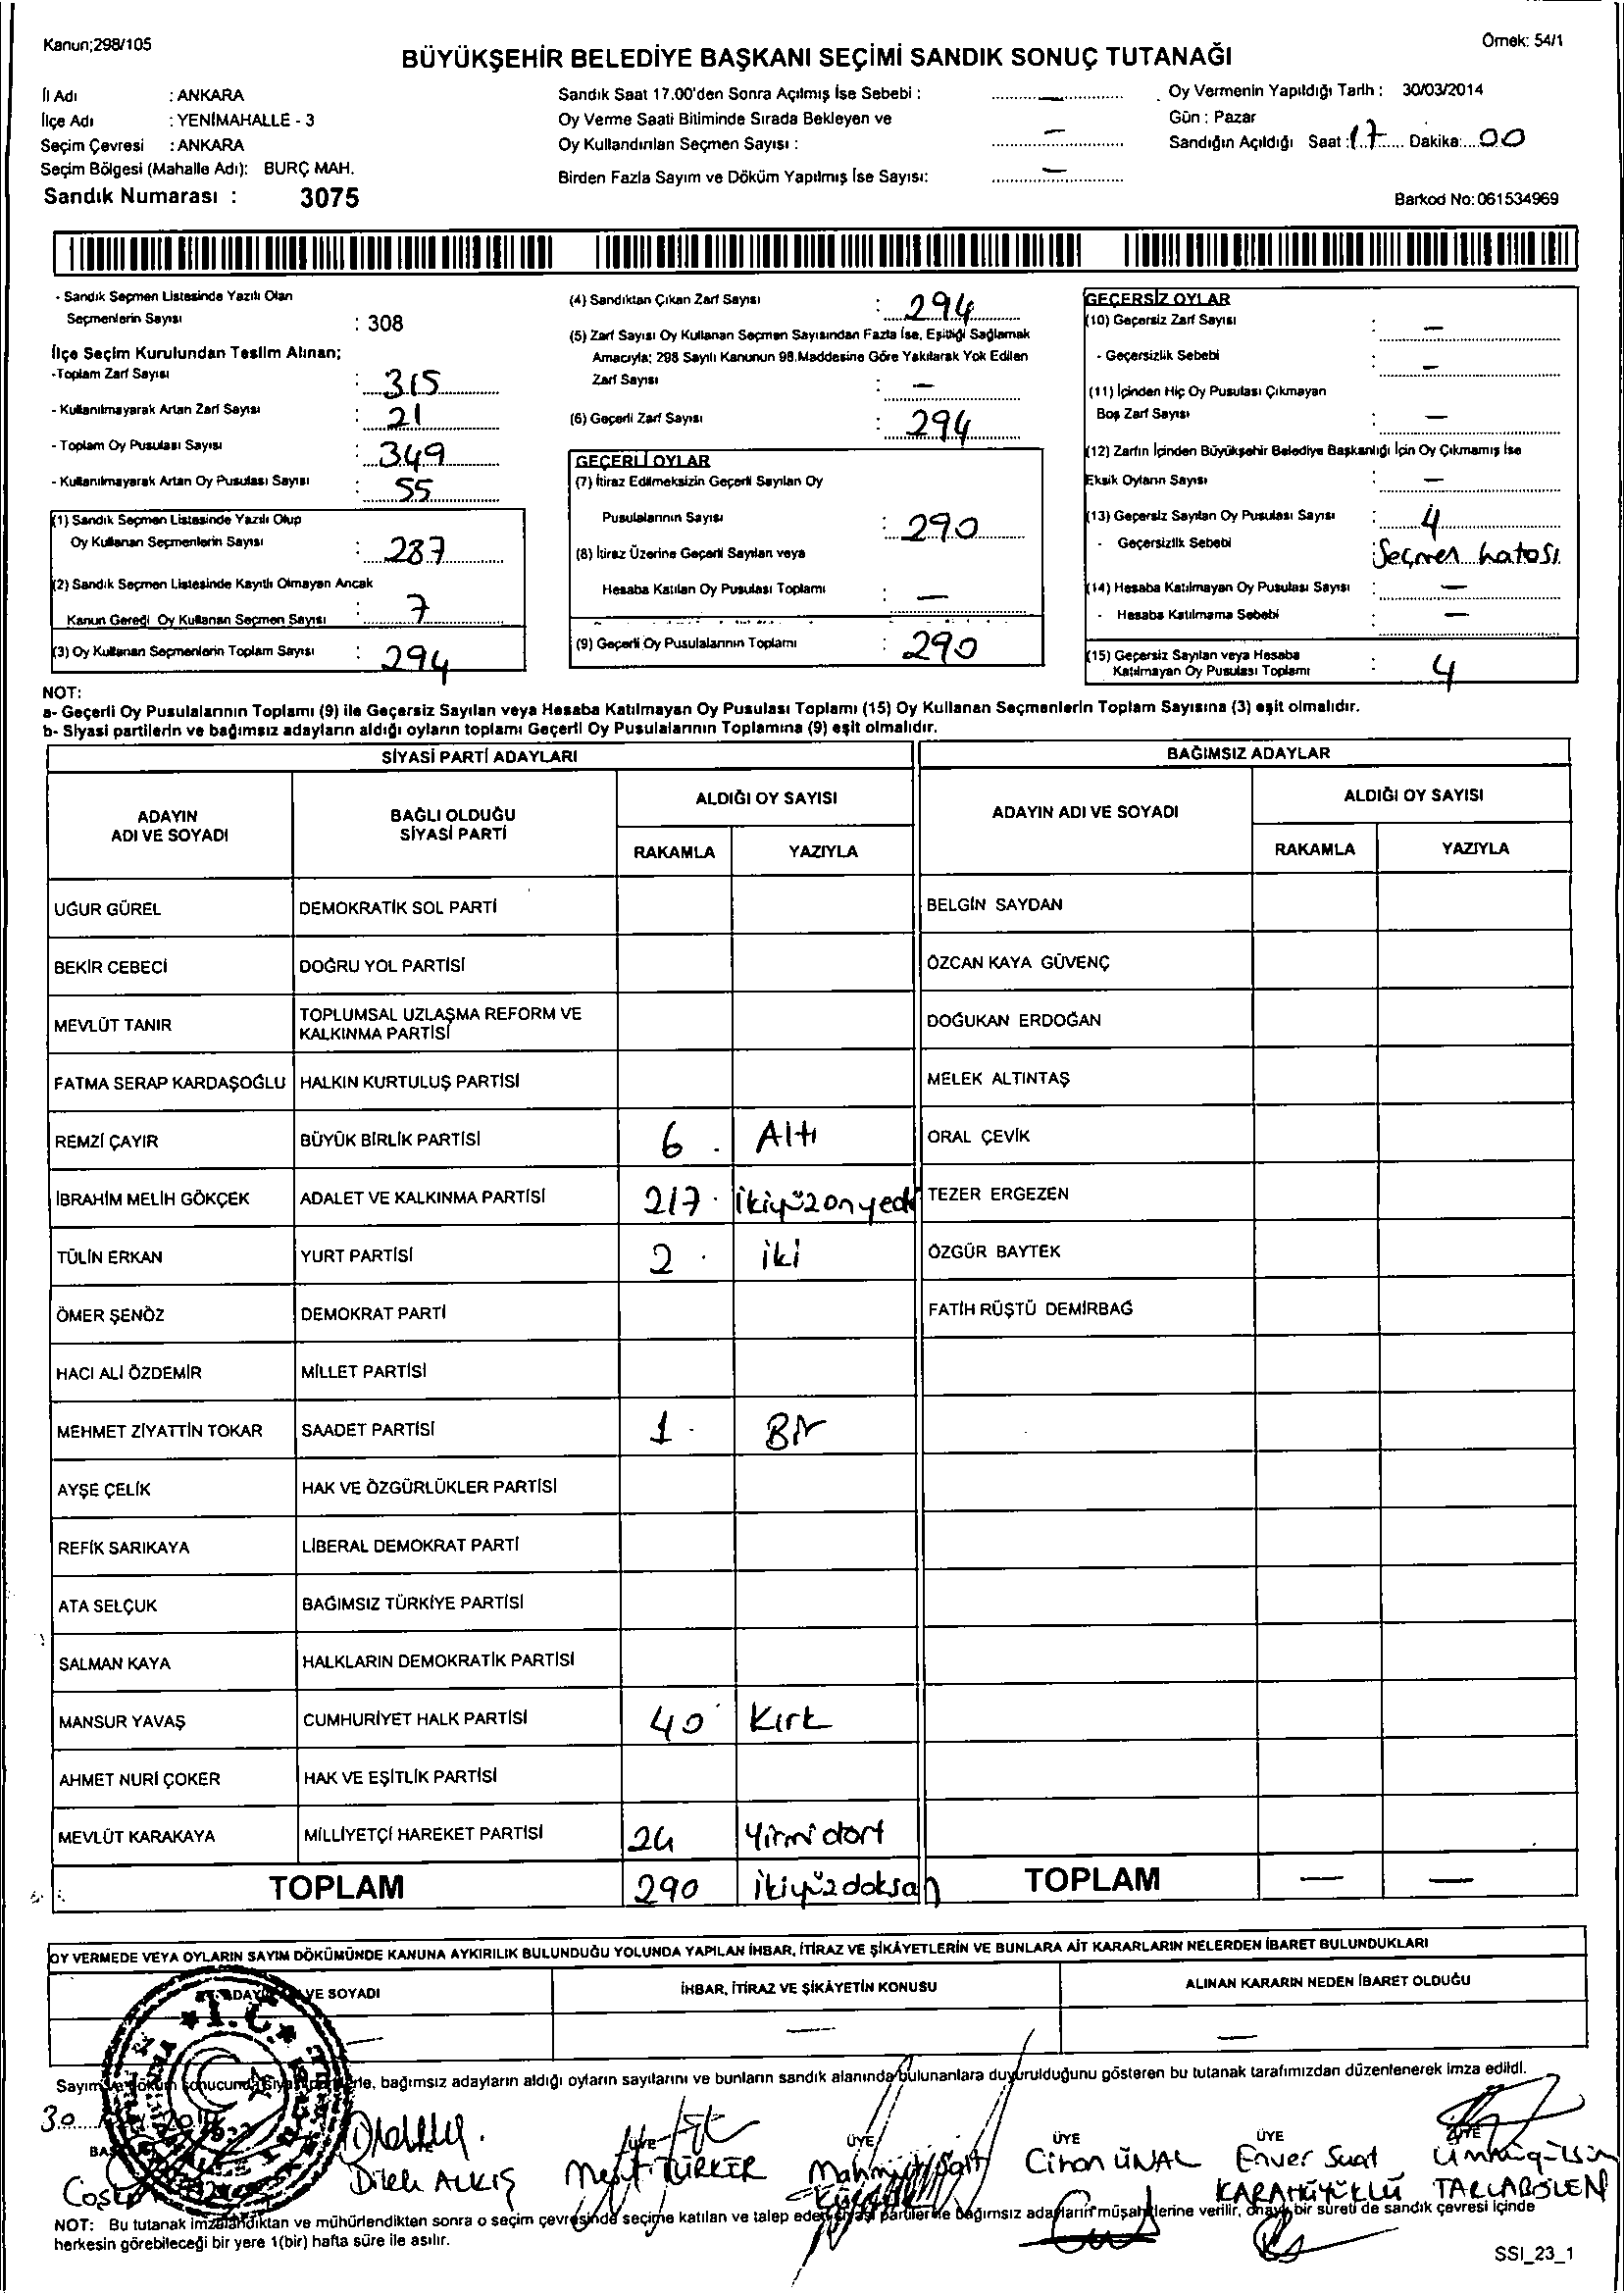 Kanun;298/105
Örnek: 54/1
BÜYÜKŞEHİR BELEDİYE BAŞKANI SEÇİMİ SANDIK SONUÇ TUTANAĞI
İl Adı : ANKARA
İlçe Adı : YENİMAHALLE - 3
Seçim Çevresi : ANKARA
Seçim Bölgesi (Mahalle Adı): BURÇ MAH.
Sandık Numarası : 3075
Sandık Saat 17.00'den Sonra Açılmış İse Sebebi : —
Oy Verme Saati Bitiminde Sırada Bekleyen ve
Oy Kullandırılan Seçmen Sayısı : —
Birden Fazla Sayım ve Döküm Yapılmış İse Sayısı: —
Oy Vermenin Yapıldığı Tarih : 30/03/2014
Gün : Pazar
Sandığın Açıldığı Saat : 17 Dakika: 00
Barkod No: 061534969
- Sandık Seçmen Listesinde Yazılı Olan
Seçmenlerin Sayısı : 308
İlçe Seçim Kurulundan Teslim Alınan;
-Toplam Zarf Sayısı : 315
- Kullanılmayarak Artan Zarf Sayısı : 21
- Toplam Oy Pusulası Sayısı : 349
- Kullanılmayarak Artan Oy Pusulası Sayısı : 55
(1) Sandık Seçmen Listesinde Yazılı Olup
Oy Kullanan Seçmenlerin Sayısı : 287
(2) Sandık Seçmen Listesinde Kayıtlı Olmayan Ancak
Kanun Gereği Oy Kullanan Seçmen Sayısı : 7
(3) Oy Kullanan Seçmenlerin Toplam Sayısı : 294
(4) Sandıktan Çıkan Zarf Sayısı : 294
(5) Zarf Sayısı Oy Kullanan Seçmen Sayısından Fazla İse, Eşitliği Sağlamak
Amacıyla; 298 Sayılı Kanunun 98.Maddesine Göre Yakılarak Yok Edilen
Zarf Sayısı : —
(6) Geçerli Zarf Sayısı : 294
GEÇERLİ OYLAR
(7) İtiraz Edilmeksizin Geçerli Sayılan Oy
Pusulalarının Sayısı : 290
(8) İtiraz Üzerine Geçerli Sayılan veya
Hesaba Katılan Oy Pusulası Toplamı : —
(9) Geçerli Oy Pusulalarının Toplamı : 290
GEÇERSİZ OYLAR
(10) Geçersiz Zarf Sayısı : —
- Geçersizlik Sebebi : —
(11) İçinden Hiç Oy Pusulası Çıkmayan
Boş Zarf Sayısı : —
(12) Zarfın İçinden Büyükşehir Belediye Başkanlığı İçin Oy Çıkmamış İse
Eksik Oyların Sayısı : —
(13) Geçersiz Sayılan Oy Pusulası Sayısı : 4
- Geçersizlik Sebebi : Seçmen hatası
(14) Hesaba Katılmayan Oy Pusulası Sayısı : —
- Hesaba Katılmama Sebebi : —
(15) Geçersiz Sayılan veya Hesaba
Katılmayan Oy Pusulası Toplamı : 4
NOT:
a- Geçerli Oy Pusulalarının Toplamı (9) ile Geçersiz Sayılan veya Hesaba Katılmayan Oy Pusulası Toplamı (15) Oy Kullanan Seçmenlerin Toplam Sayısına (3) eşit olmalıdır.
b- Siyasi partilerin ve bağımsız adayların aldığı oyların toplamı Geçerli Oy Pusulalarının Toplamına (9) eşit olmalıdır.
SİYASİ PARTİ ADAYLARI
BAĞIMSIZ ADAYLAR
ADAYIN
ADI VE SOYADI
BAĞLI OLDUĞU
SİYASİ PARTİ
ALDIĞI OY SAYISI
RAKAMLA YAZIYLA
ADAYIN ADI VE SOYADI
ALDIĞI OY SAYISI
RAKAMLA YAZIYLA
UĞUR GÜREL DEMOKRATİK SOL PARTİ BELGİN SAYDAN
BEKİR CEBECİ DOĞRU YOL PARTİSİ ÖZCAN KAYA GÜVENÇ
MEVLÜT TANIR TOPLUMSAL UZLAŞMA REFORM VE
KALKINMA PARTİSİ DOĞUKAN ERDOĞAN
FATMA SERAP KARDAŞOĞLU HALKIN KURTULUŞ PARTİSİ MELEK ALTINTAŞ
REMZİ ÇAYIR BÜYÜK BİRLİK PARTİSİ 6 Altı ORAL ÇEVİK
İBRAHİM MELİH GÖKÇEK ADALET VE KALKINMA PARTİSİ 217 ikiyüzonyedi TEZER ERGEZEN
TÜLİN ERKAN YURT PARTİSİ 2 iki ÖZGÜR BAYTEK
ÖMER ŞENÖZ DEMOKRAT PARTİ FATİH RÜŞTÜ DEMİRBAĞ
HACI ALİ ÖZDEMİR MİLLET PARTİSİ
MEHMET ZİYATTİN TOKAR SAADET PARTİSİ 1 Bir
AYŞE ÇELİK HAK VE ÖZGÜRLÜKLER PARTİSİ
REFİK SARIKAYA LİBERAL DEMOKRAT PARTİ
ATA SELÇUK BAĞIMSIZ TÜRKİYE PARTİSİ
SALMAN KAYA HALKLARIN DEMOKRATİK PARTİSİ
MANSUR YAVAŞ CUMHURİYET HALK PARTİSİ 40 Kırk
AHMET NURİ ÇOKER HAK VE EŞİTLİK PARTİSİ
MEVLÜT KARAKAYA MİLLİYETÇİ HAREKET PARTİSİ 24 Yirmi dört
TOPLAM 290 ikiyüzdoksan TOPLAM — —
OY VERMEDE VEYA OYLARIN SAYIM DÖKÜMÜNDE KANUNA AYKIRILIK BULUNDUĞU YOLUNDA YAPILAN İHBAR, İTİRAZ VE ŞİKÂYETLERİN VE BUNLARA AİT KARARLARIN NELERDEN İBARET BULUNDUKLARI
VE SOYADI İHBAR, İTİRAZ VE ŞİKÂYETİN KONUSU ALINAN KARARIN NEDEN İBARET OLDUĞU
— — —
T.C.
bağımsız adayların aldığı oyların sayılarını ve bunların sandık alanında bulunanlara duyurulduğunu gösteren bu tutanak tarafımızdan düzenlenerek imza edildi.
30
ÜYE ÜYE ÜYE ÜYE ÜYE
Dilek ALKIŞ Mesut TÜRKER Cihan ÜNAL Enver Suat
KARAHÜYÜKLÜ
Ümmügülsüm
TARLABÖLEN
NOT: Bu tutanak imzalandıktan ve mühürlendikten sonra o seçim çevresinde seçime katılan ve talep eden siyasi partiler ile bağımsız adayların müşahitlerine verilir, onaylı bir sureti de sandık çevresi içinde
herkesin görebileceği bir yere 1(bir) hafta süre ile asılır.
SSI_23_1